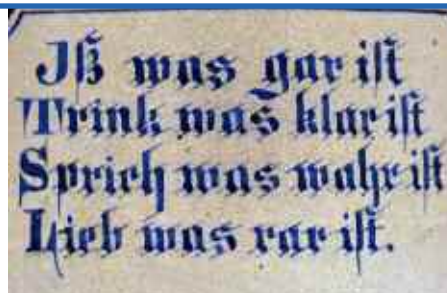 Iß was gar ist
Trink was klar ist
Sprich was wahr ist
Lieb was rar ist.